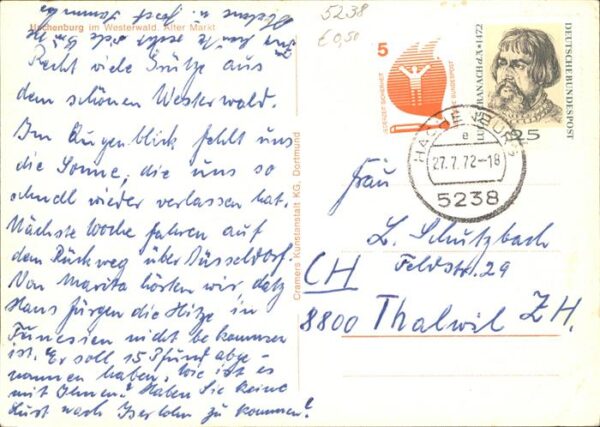 5238
€ 0,50
Hachenburg im Westerwald. Alter Markt
Recht viele Grüße aus
dem schönen Westerwald.
Im Augenblick fehlt uns
die Sonne, die uns so
schnell wieder verlassen hat.
Nächste Woche fahren auf
dem Rückweg über Düsseldorf.
Von Marita hörten wir daß
Hans Jürgen die Hitze in
Tunesien nicht bekommen
ist. Er soll 15 Pfund abge-
nommen haben, wie ist es
mit Ihnen? Haben Sie keine
Lust nach Iserlohn zu kommen?
Cramers Kunstanstalt KG, Dortmund
5
JEDERZEIT SICHERHEIT
DEUTSCHE BUNDESPOST
CRANACH d.Ä. 1472
DEUTSCHE BUNDESPOST
25
HACHENBURG
e
27.7.72-18
5238
Frau
L. Schutzbach
Feldstr. 29
CH
8800 Thalwil ZH.